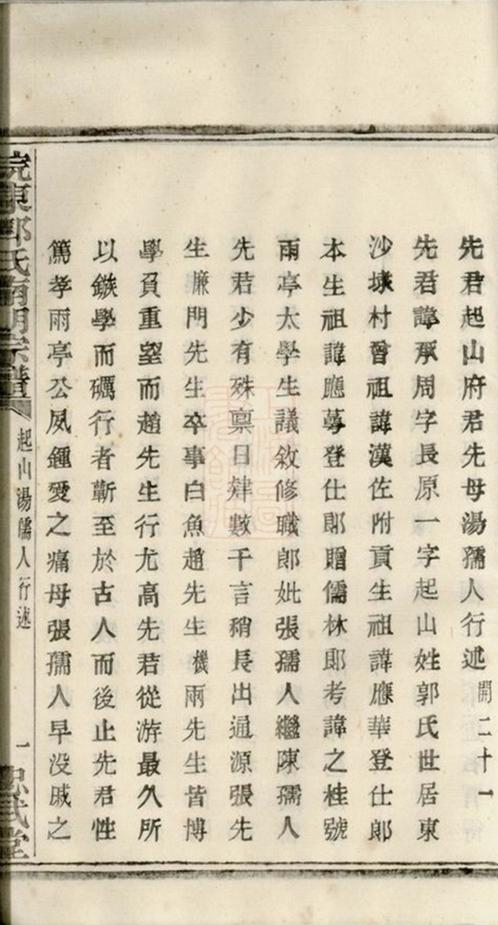 先君起山府君先母湯孺人行述開二十一
先君諱承周字長原一字起山姓郭氏世居東
沙墩村曾祖諱漢佐附貢生祖諱應華登仕郎
本生祖諱應蕚登仕郎贈儒林郎考諱之桂號
雨亭太學生議敘修職郎妣張孺人繼陳孺人
先君少有殊禀日肄數千言稍長出通源張先
生廉門先生卒事白魚趙先生機兩先生皆博
學負重望而趙先生行尤高先君從游最久所
以鏃學而礪行者蘄至於古人而後止先君性
篤孝雨亭公夙鍾愛之痛母張孺人早没戚之
皖東郭氏南明宗譜
起山湯孺人行述
一